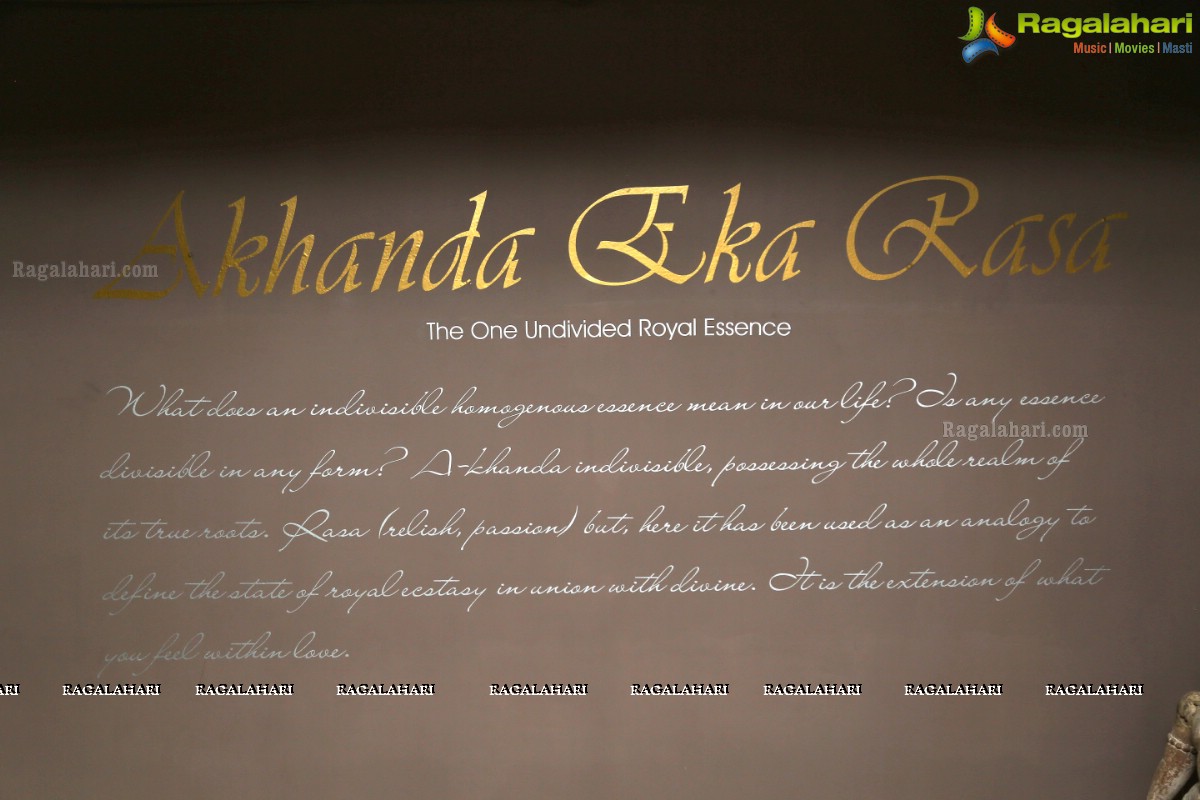 Ragalahari
Music | Movies | Masti
Akhanda Eka Rasa
Ragalahari.com
The One Undivided Royal Essence
What does an indivisible homogenous essence mean in our life? Is any essence
Ragalahari.com
divisible in any form? A-khanda indivisible, possessing the whole realm of
its true roots. Rasa (relish, passion) but, here it has been used as an analogy to
define the state of royal ecstasy in union with divine. It is the extension of what
you feel within love.
ARI RAGALAHARI RAGALAHARI RAGALAHARI RAGALAHARI RAGALAHARI RAGALAHARI RAGALAHARI RAGALAHARI